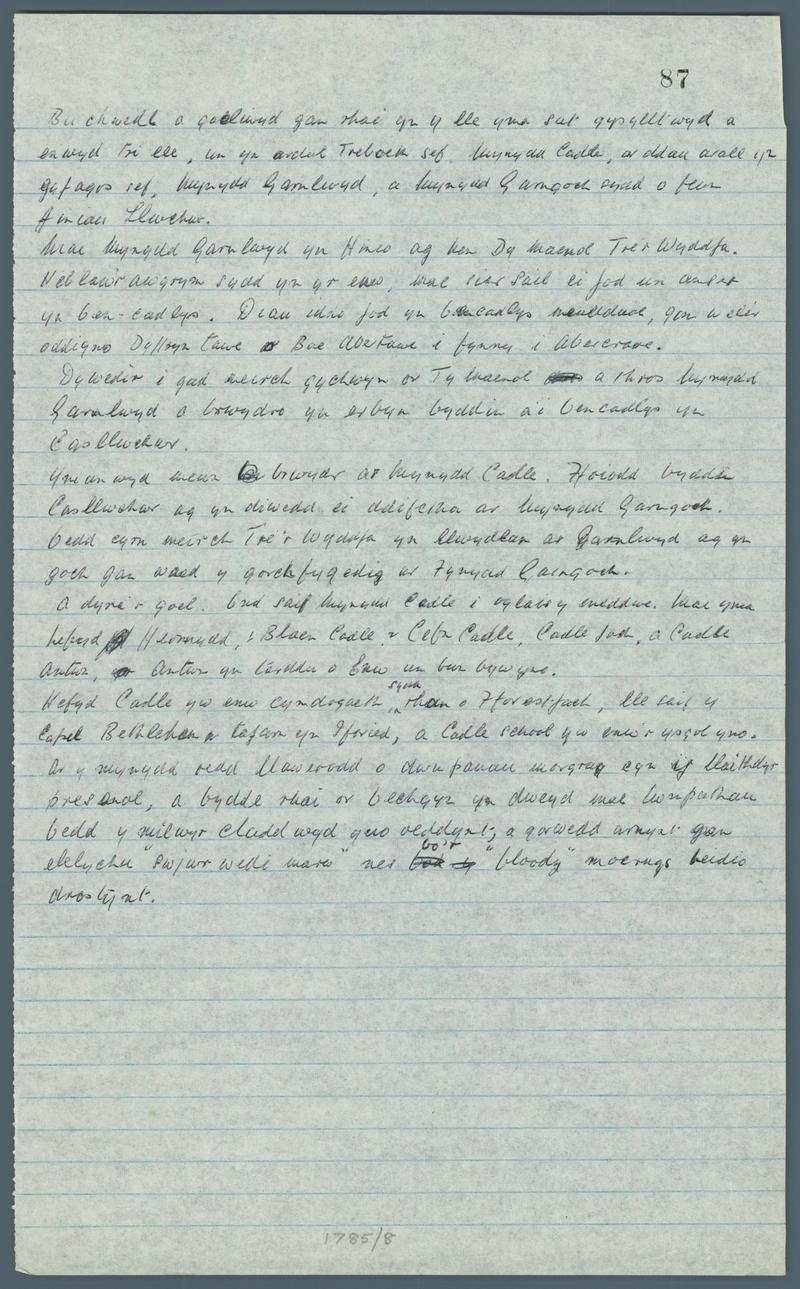 87
Bu chwedl a goeliwyd gan rhai yn y lle yma sut gysylltwyd a
enwyd tri lle, un yn ardal Treboeth sef Mynydd Cadle, ar ddau arall yn
gyfagos sef, Mynydd Garnlwyd, a Mynydd Garngoch sydd o fewn
finiau Llwchwr.
Mae Mynydd Garnlwyd yn ffinio ag hen Dy Maenol Tre'r Wyddfa.
Neblaw'r awgrym sydd yn yr enw, mae sicr sail ei fod un amser
yn ben-cadlys. Diau iddo fod yn bencadlys meuddwol, gan weler
oddiyno Dyffryn Tawe a Bae Abertawe i fynny i Abercrave.
Dywedir i gad meirch gychwyn or Ty Maenol a thros Mynydd
Garnlwyd a brwydro yn erbyn byddin a'i bencadlys yn
Casllwchwr.
Ymunwyd mewn brwydr ar Mynydd Cadle. Ffoiodd byddin
Casllwchwr ag yn diwedd ei ddifetha ar Mynydd Garngoch.
bedd cyrn meirch Tre'r Wyddfa yn llwydlan ar Garnlwyd ag yn
goch gan waed y gorchfygedig ar Fynydd Garngoch.
A dyna'r goel. Ond saif Mynydd Cadle i oglais y meddwl. Mae yma
hefyd Heolmynydd, Blaen Cadle, Cefn Cadle, Cadle Fach, a Cadle
Antwn, Antwn yn tarddu o enw un bu'n byw yno.
Hefyd Cadle yw enw cymdogaeth sydd rhan o Fforestfach, lle saif y
Capel Bethlehem a tafarn yn Iforied, a Cadle School yw enw'r ysgol yno.
Ar y mynydd redd llawerodd o dwmpanau morgrug cyn if llaithdyr
presenol, a bydde rhai or bechgyn yn dweyd mae lwmpathau
bedd y milwyr claddwyd yno oeddynt, a gorwedd arnynt gan
efelychu "Swjwr wedi marw" nes bo'r "bloody" morrugs heidio
drostynt.
1785/8